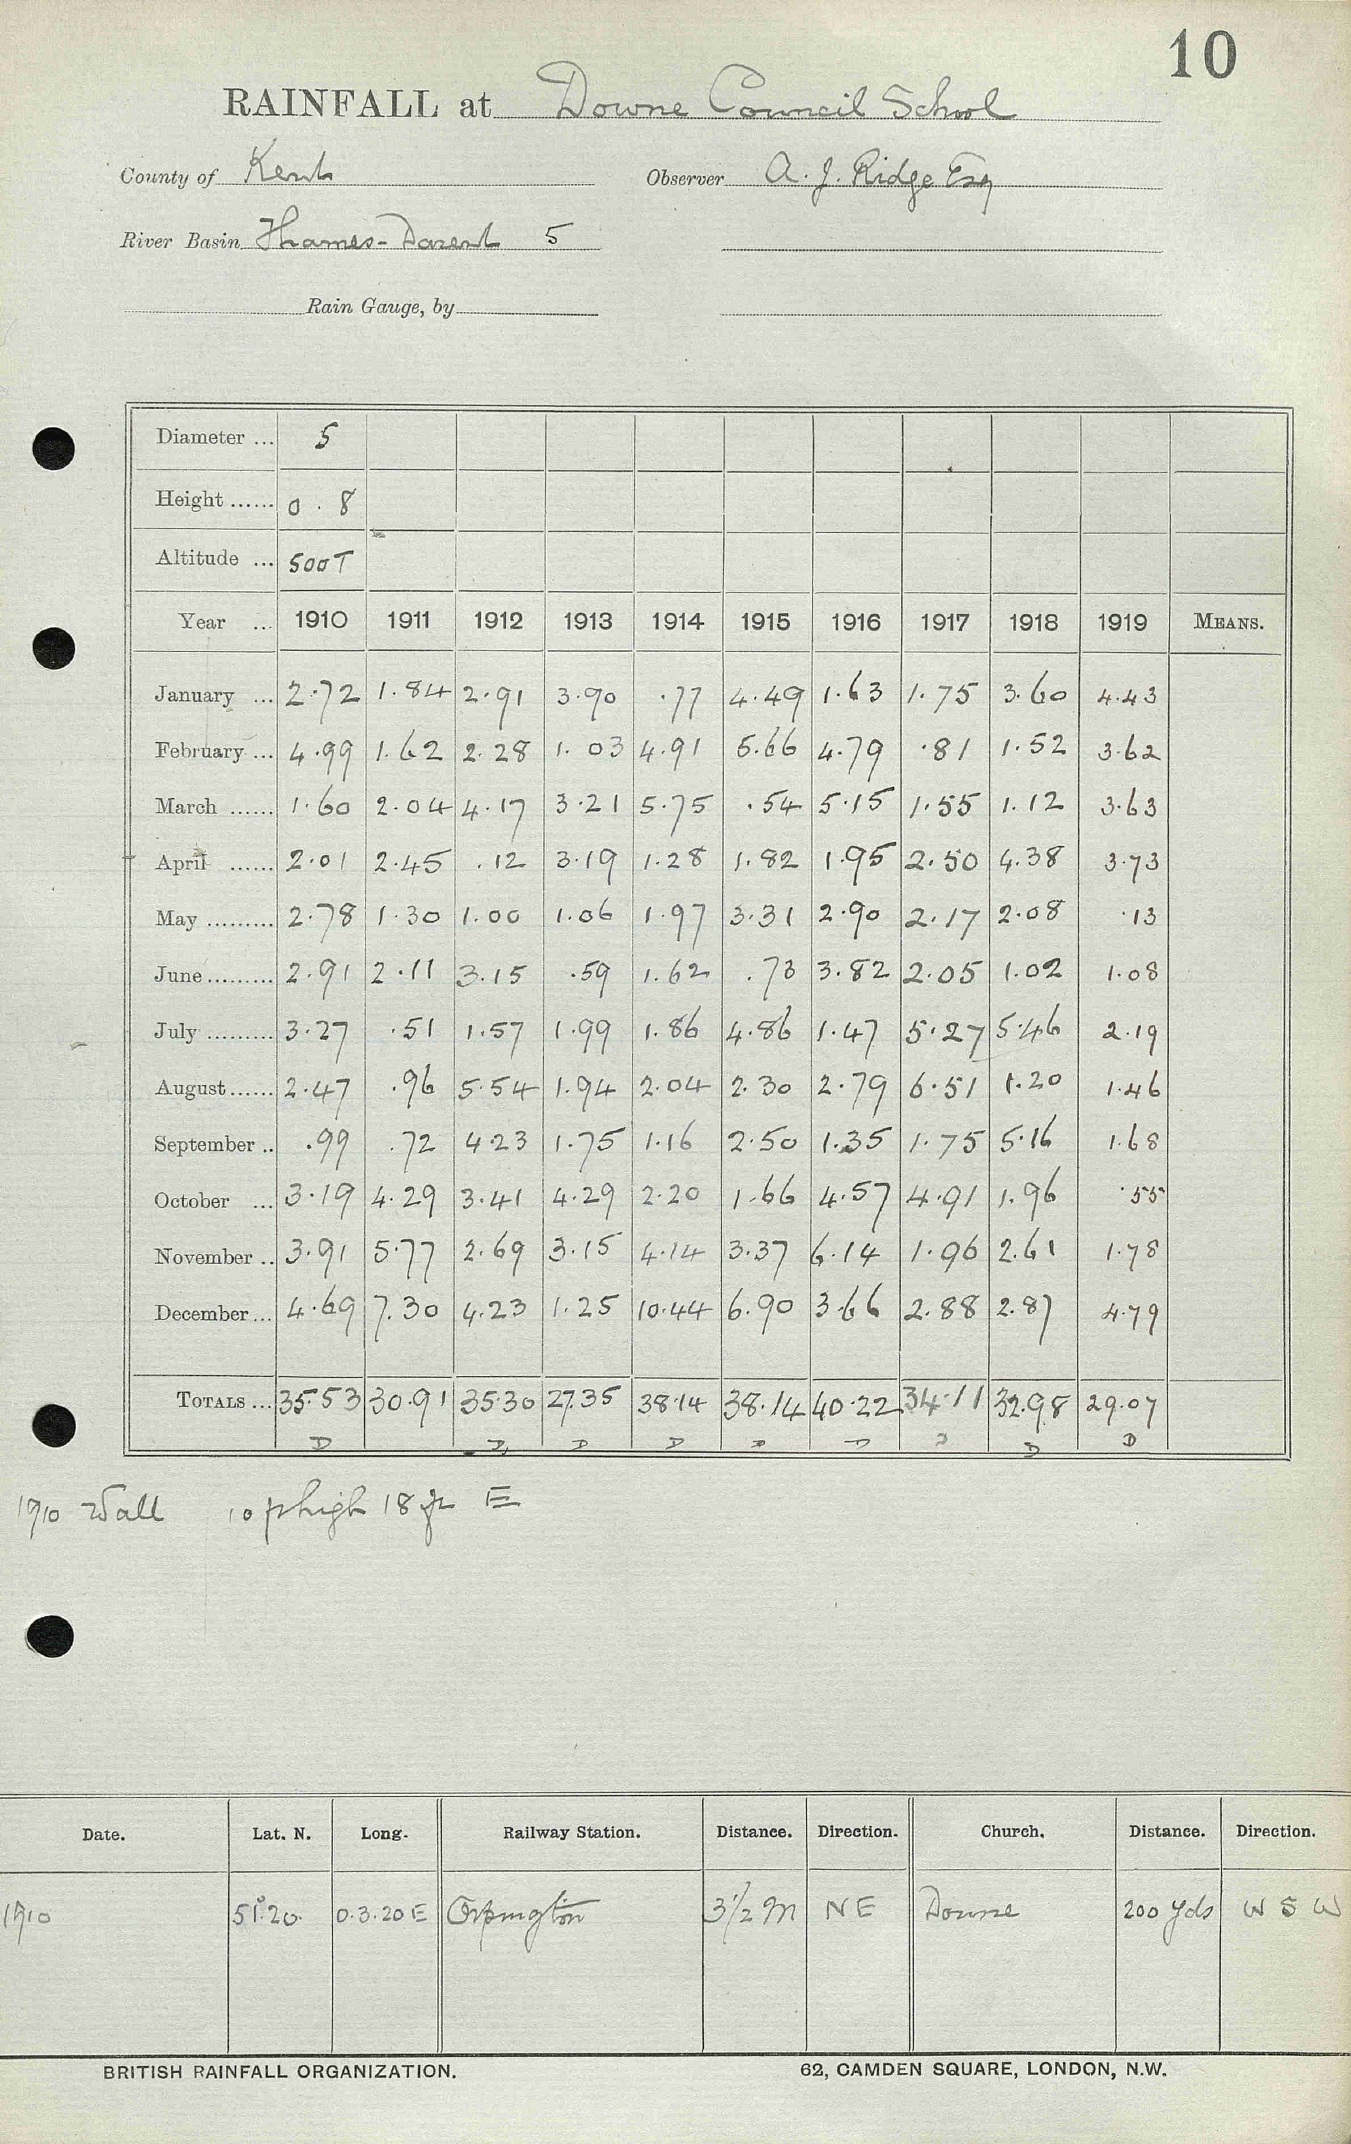 10
RAINFALL at Downe Council School
County of Kent Observer A. J. Ridge Esq
River Basin Thames-Darent 5
Rain Gauge, by
Diameter ... 5
Height ...... 0 . 8
Altitude ... 500T
Year ... 1910 1911 1912 1913 1914 1915 1916 1917 1918 1919 MEANS.
January ... 2.72 1.84 2.91 3.90 .77 4.49 1.63 1.75 3.60 4.43
February ... 4.99 1.62 2.28 1.03 4.91 5.66 4.79 .81 1.52 3.62
March ...... 1.60 2.04 4.17 3.21 5.75 .54 5.15 1.55 1.12 3.63
April ...... 2.01 2.45 .12 3.19 1.28 1.82 1.95 2.50 4.38 3.73
May ......... 2.78 1.30 1.00 1.06 1.97 3.31 2.90 2.17 2.08 .13
June ......... 2.91 2.11 3.15 .59 1.62 .73 3.82 2.05 1.02 1.08
July ......... 3.27 .51 1.57 1.99 1.86 4.86 1.47 5.27 5.46 2.19
August ...... 2.47 .96 5.54 1.94 2.04 2.30 2.79 6.51 1.20 1.46
September .. .99 .72 4.23 1.75 1.16 2.50 1.35 1.75 5.16 1.68
October ... 3.19 4.29 3.41 4.29 2.20 1.66 4.57 4.91 1.96 .55
November .. 3.91 5.77 2.69 3.15 4.14 3.37 6.14 1.96 2.61 1.78
December ... 4.69 7.30 4.23 1.25 10.44 6.90 3.66 2.88 2.87 4.79
TOTALS ... 35.53 30.91 35.30 27.35 38.14 38.14 40.22 34.11 32.98 29.07
D D D D D D D D D
1910 Wall 10 ft high 18 ft E
Date. Lat. N. Long. Railway Station. Distance. Direction. Church. Distance. Direction.
1910 51°.20. 0.3.20 E Orpington 3 1/2 M NE Downe 200 yds W S W
BRITISH RAINFALL ORGANIZATION. 62, CAMDEN SQUARE, LONDON, N.W.